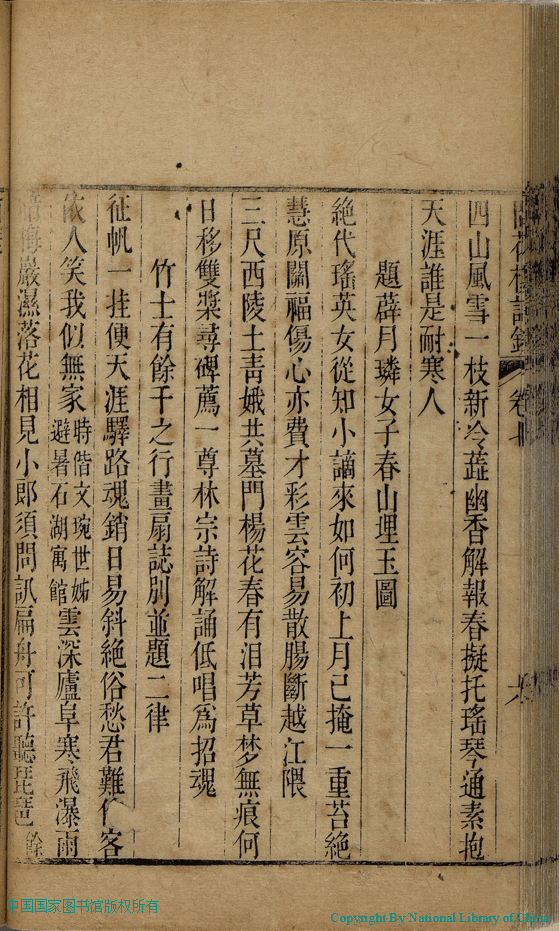 四山風雪一枝新冷蕋幽香解報春擬托瑤琴通素抱
天涯誰是耐寒人
題薛月璘女子春山埋玉圖
絶代瑤英女從知小謫來如何初上月已掩一重苔絶
慧原關福傷心亦費才彩雲容易散腸斷越江隈
三尺西陵土青娥共墓門楊花春有泪芳草梦無痕何
日移雙槳尋碑薦一尊林宗詩解誦低唱爲招魂
竹士有餘干之行畫扇誌別並題二律
征帆一挂便天涯驛路魂銷日易斜絶俗愁君難作客
依人笑我似無家時偕文琬世姊避暑石湖寓館雲深廬阜寒飛瀑雨
巖濕落花相見小郎須問訊扁舟可許聽琵琶餘
中国国家图书馆版权所有
Copyright By National Library of China